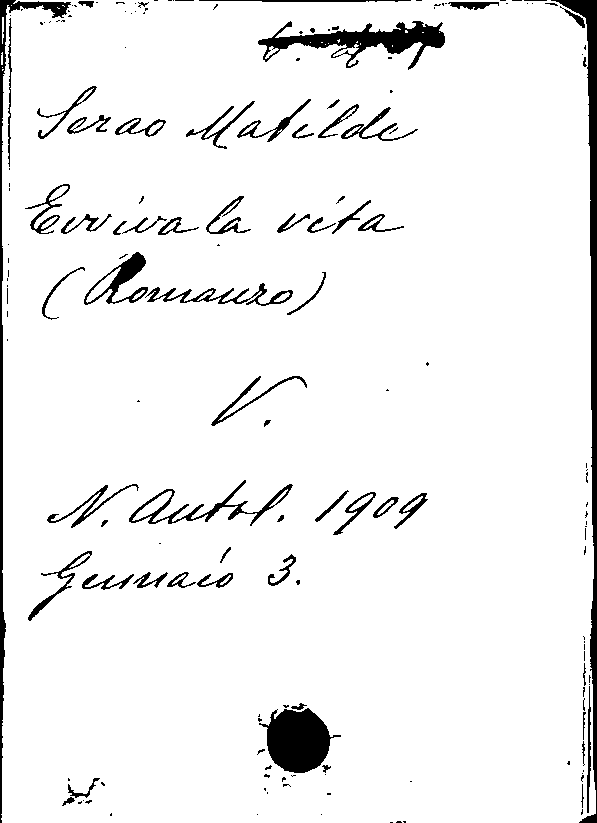 Serao Matilde
Evviva la vita
(Romanzo)
V.
N. Antol. 1909
Gennaio 3.